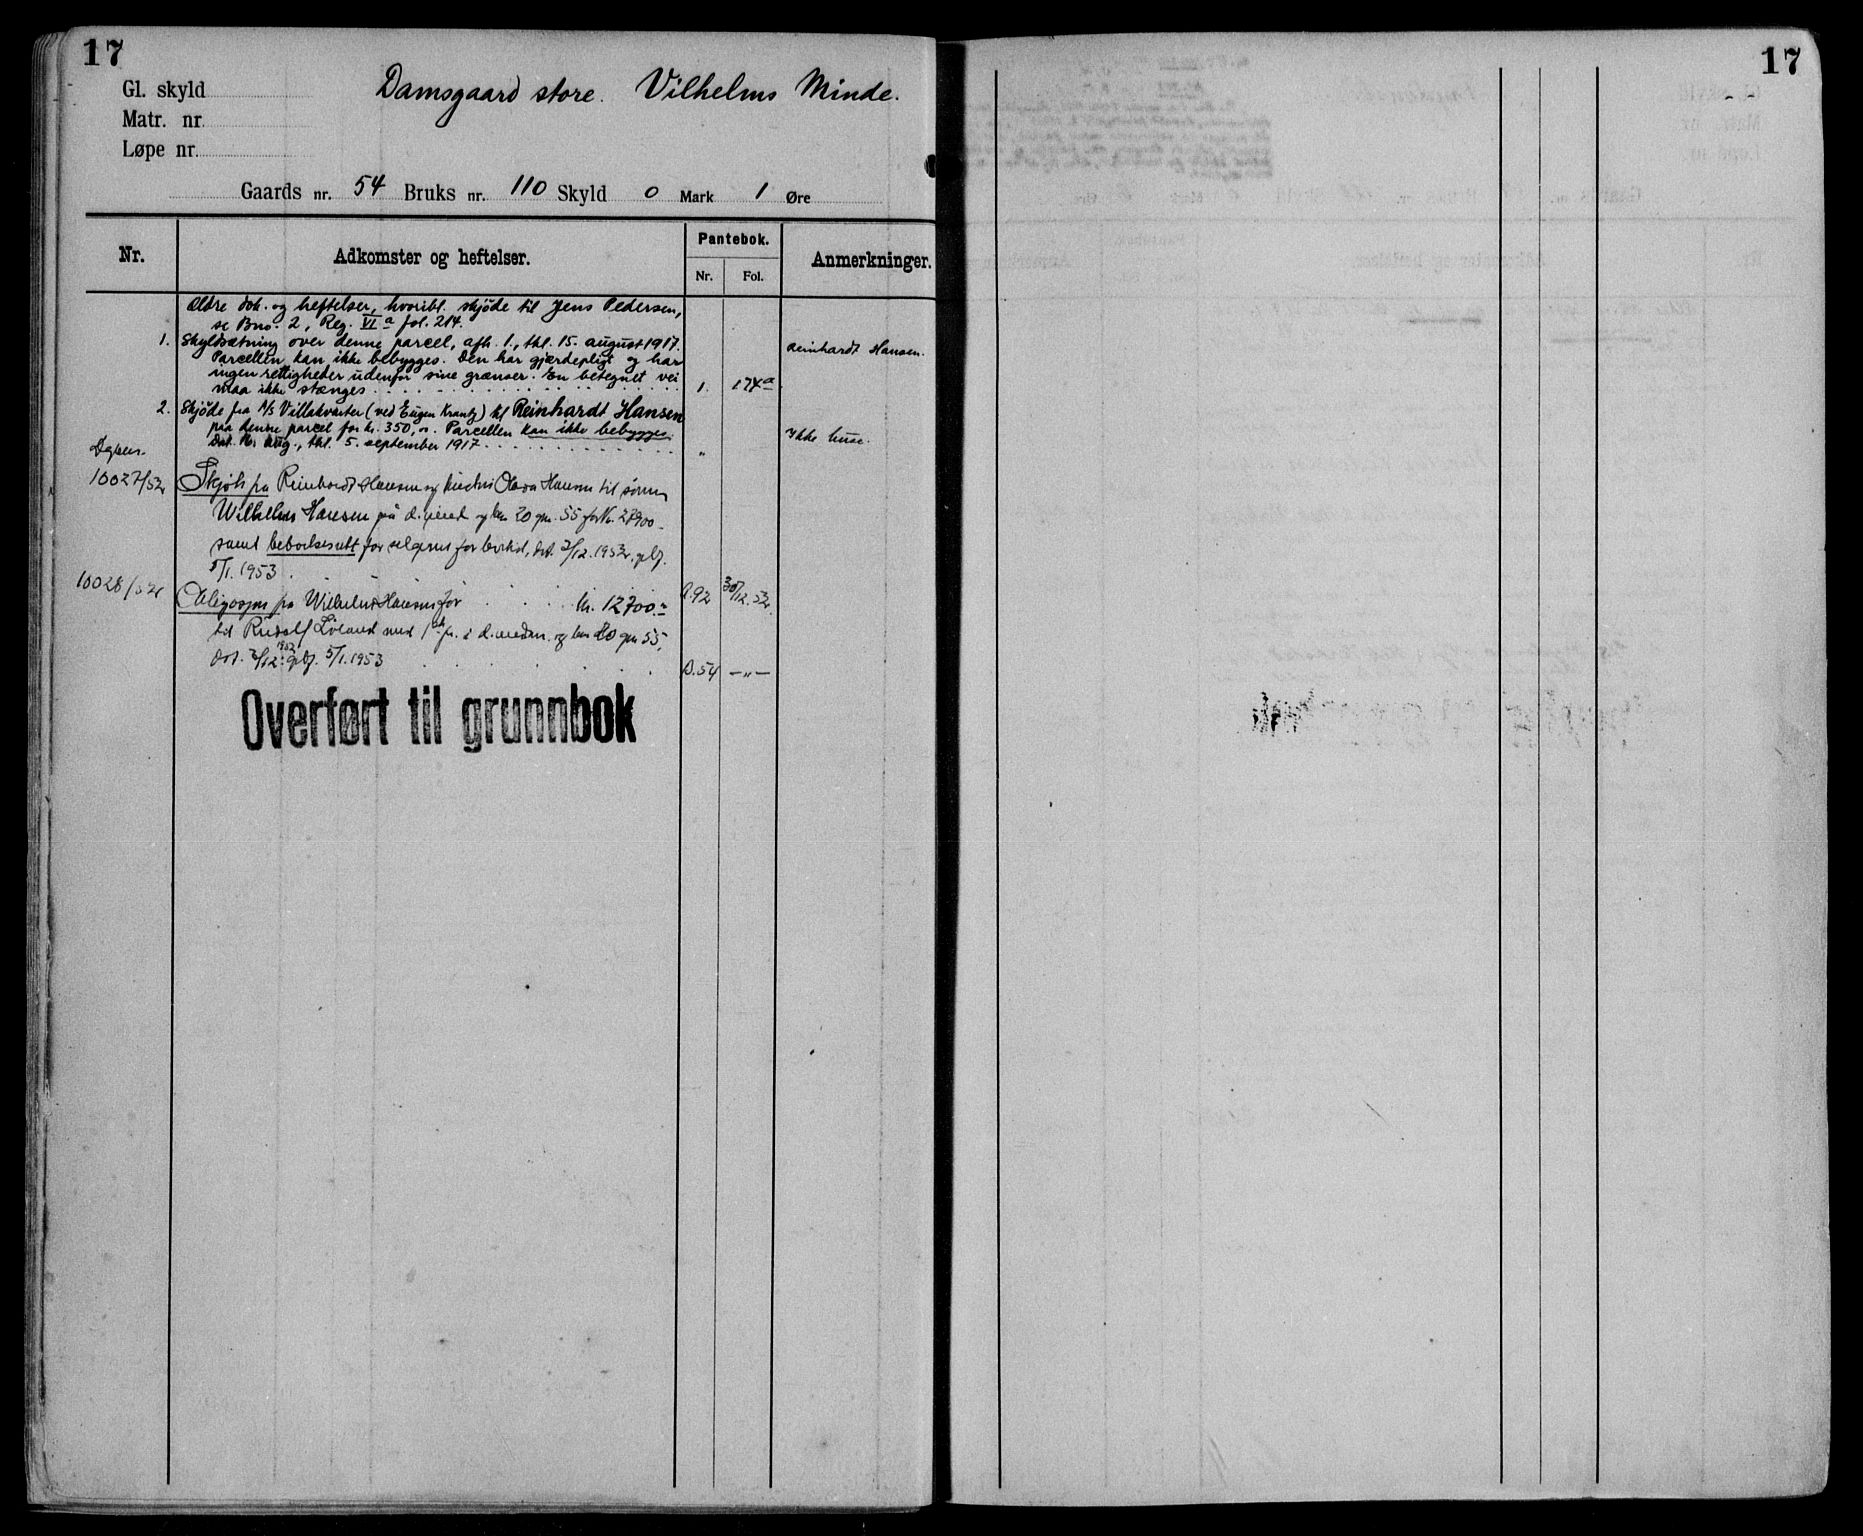 17
Gl. skyld
Damsgaard store. Vilhelms Minde.
Matr. nr.
Løpe nr.
Gaards nr. 54 Bruks nr. 110 Skyld 0 Mark 1 Øre
Nr. Adkomster og heftelser. Pantebok. Anmerkninger.
Nr. Fol.
Ældre dok. og heftelser, hvoribl. skjøde til Jens Pedersen,
se Bno. 2, Reg. VI a fol. 214.
1. Skyldsætning over denne parcel, afh. 1., thl. 15. august 1917. Reinhardt Hansen.
Parcellen kan ikke bebygges. Den har gjærdepligt og har
ingen rettigheder udenfor sine grænser. En betegnet vei
maa ikke stænges 1. 174a
2. Skjøde fra A/S Villakvarter (ved Eugen Krantz) til Reinhardt Hansen
paa denne parcel for kr. 350,00. Parcellen kan ikke bebygges. Ikke huse.
Dat. 16. aug., thl. 5. september 1917 "
Dgbnr.
10027/52 Skjøte fra Reinhardt Hansen og hustru Olava Hansen til sønn
Wilhelm Hansen på d. eiend og bnr 20 gnr. 55 for kr. 27900.-
samt boretsrett for selgerne for levetid, dat. 2/12. 1952, glbj.
5/1. 1953. A.92 30/12.52.
10028/52 Obligasjon fra Wilhelm Hansen for kr. 12700.-
til Rudolf Løland med 1ste pr. i d. eiendom og bnr 20 gnr 55,
dat. 2/12. 1952 glbj. 5/1. 1953 D.54 — " —
Overført til grunnbok
17